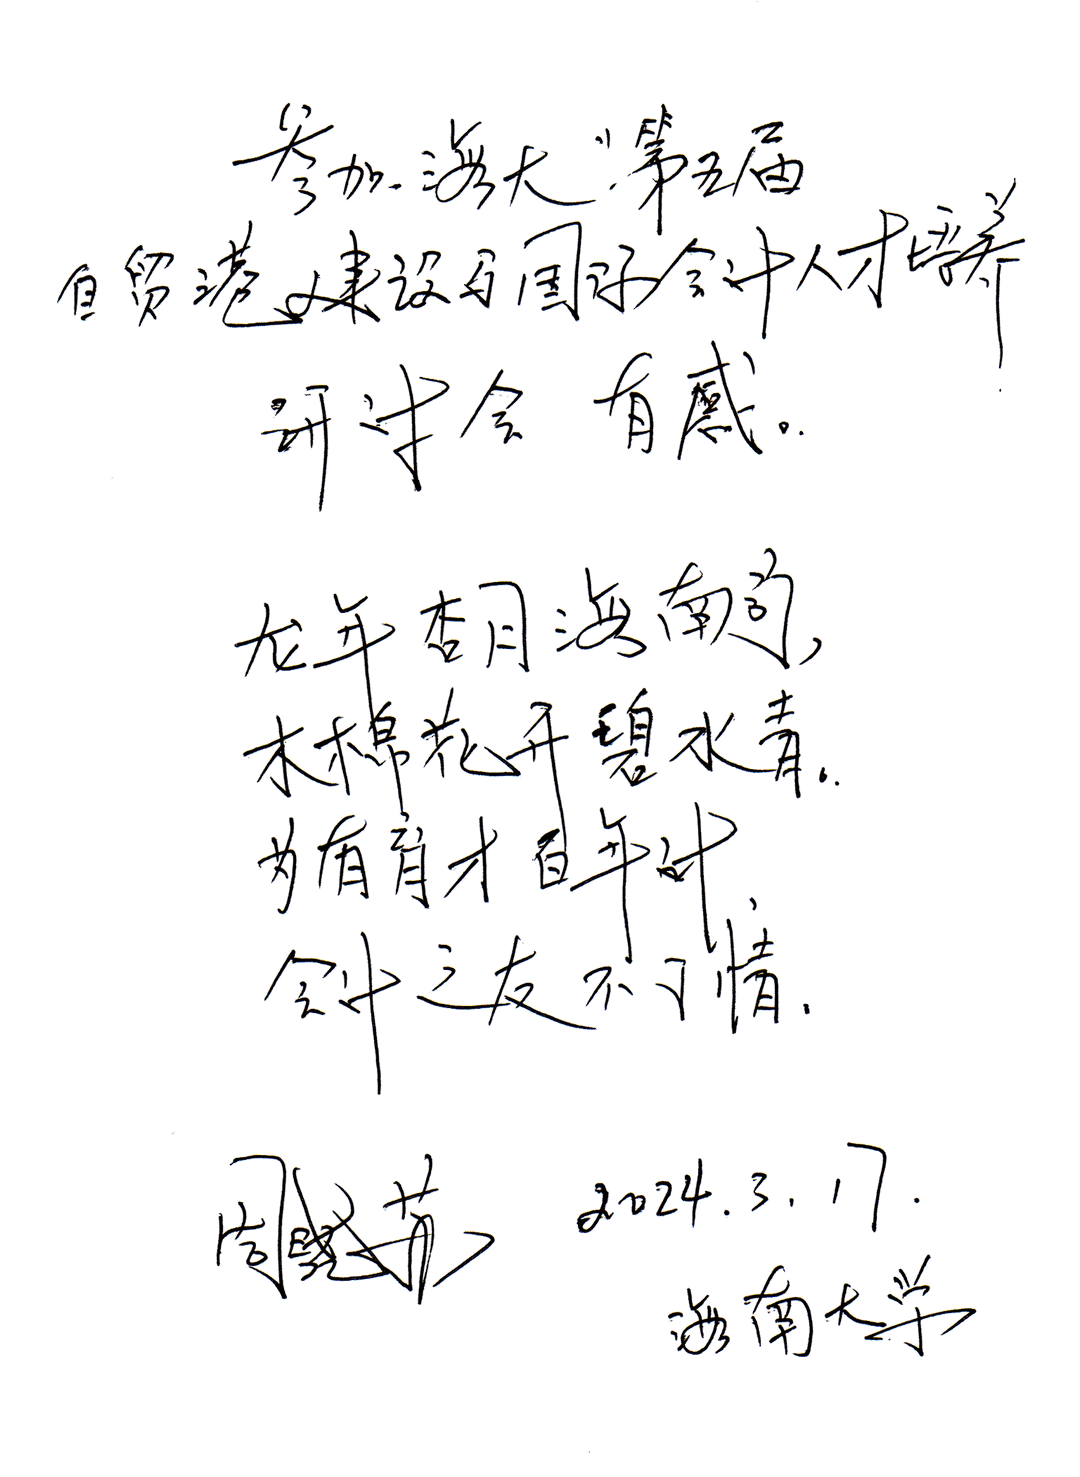 参加海大“第五届
自贸港建设与国际会计人才培养
研讨会 有感。
龙年杏月海南韵，
木棉花开碧水青。
为有育才百年计
会计之友不了情.
周晓苏 2024.3.17.
海南大学